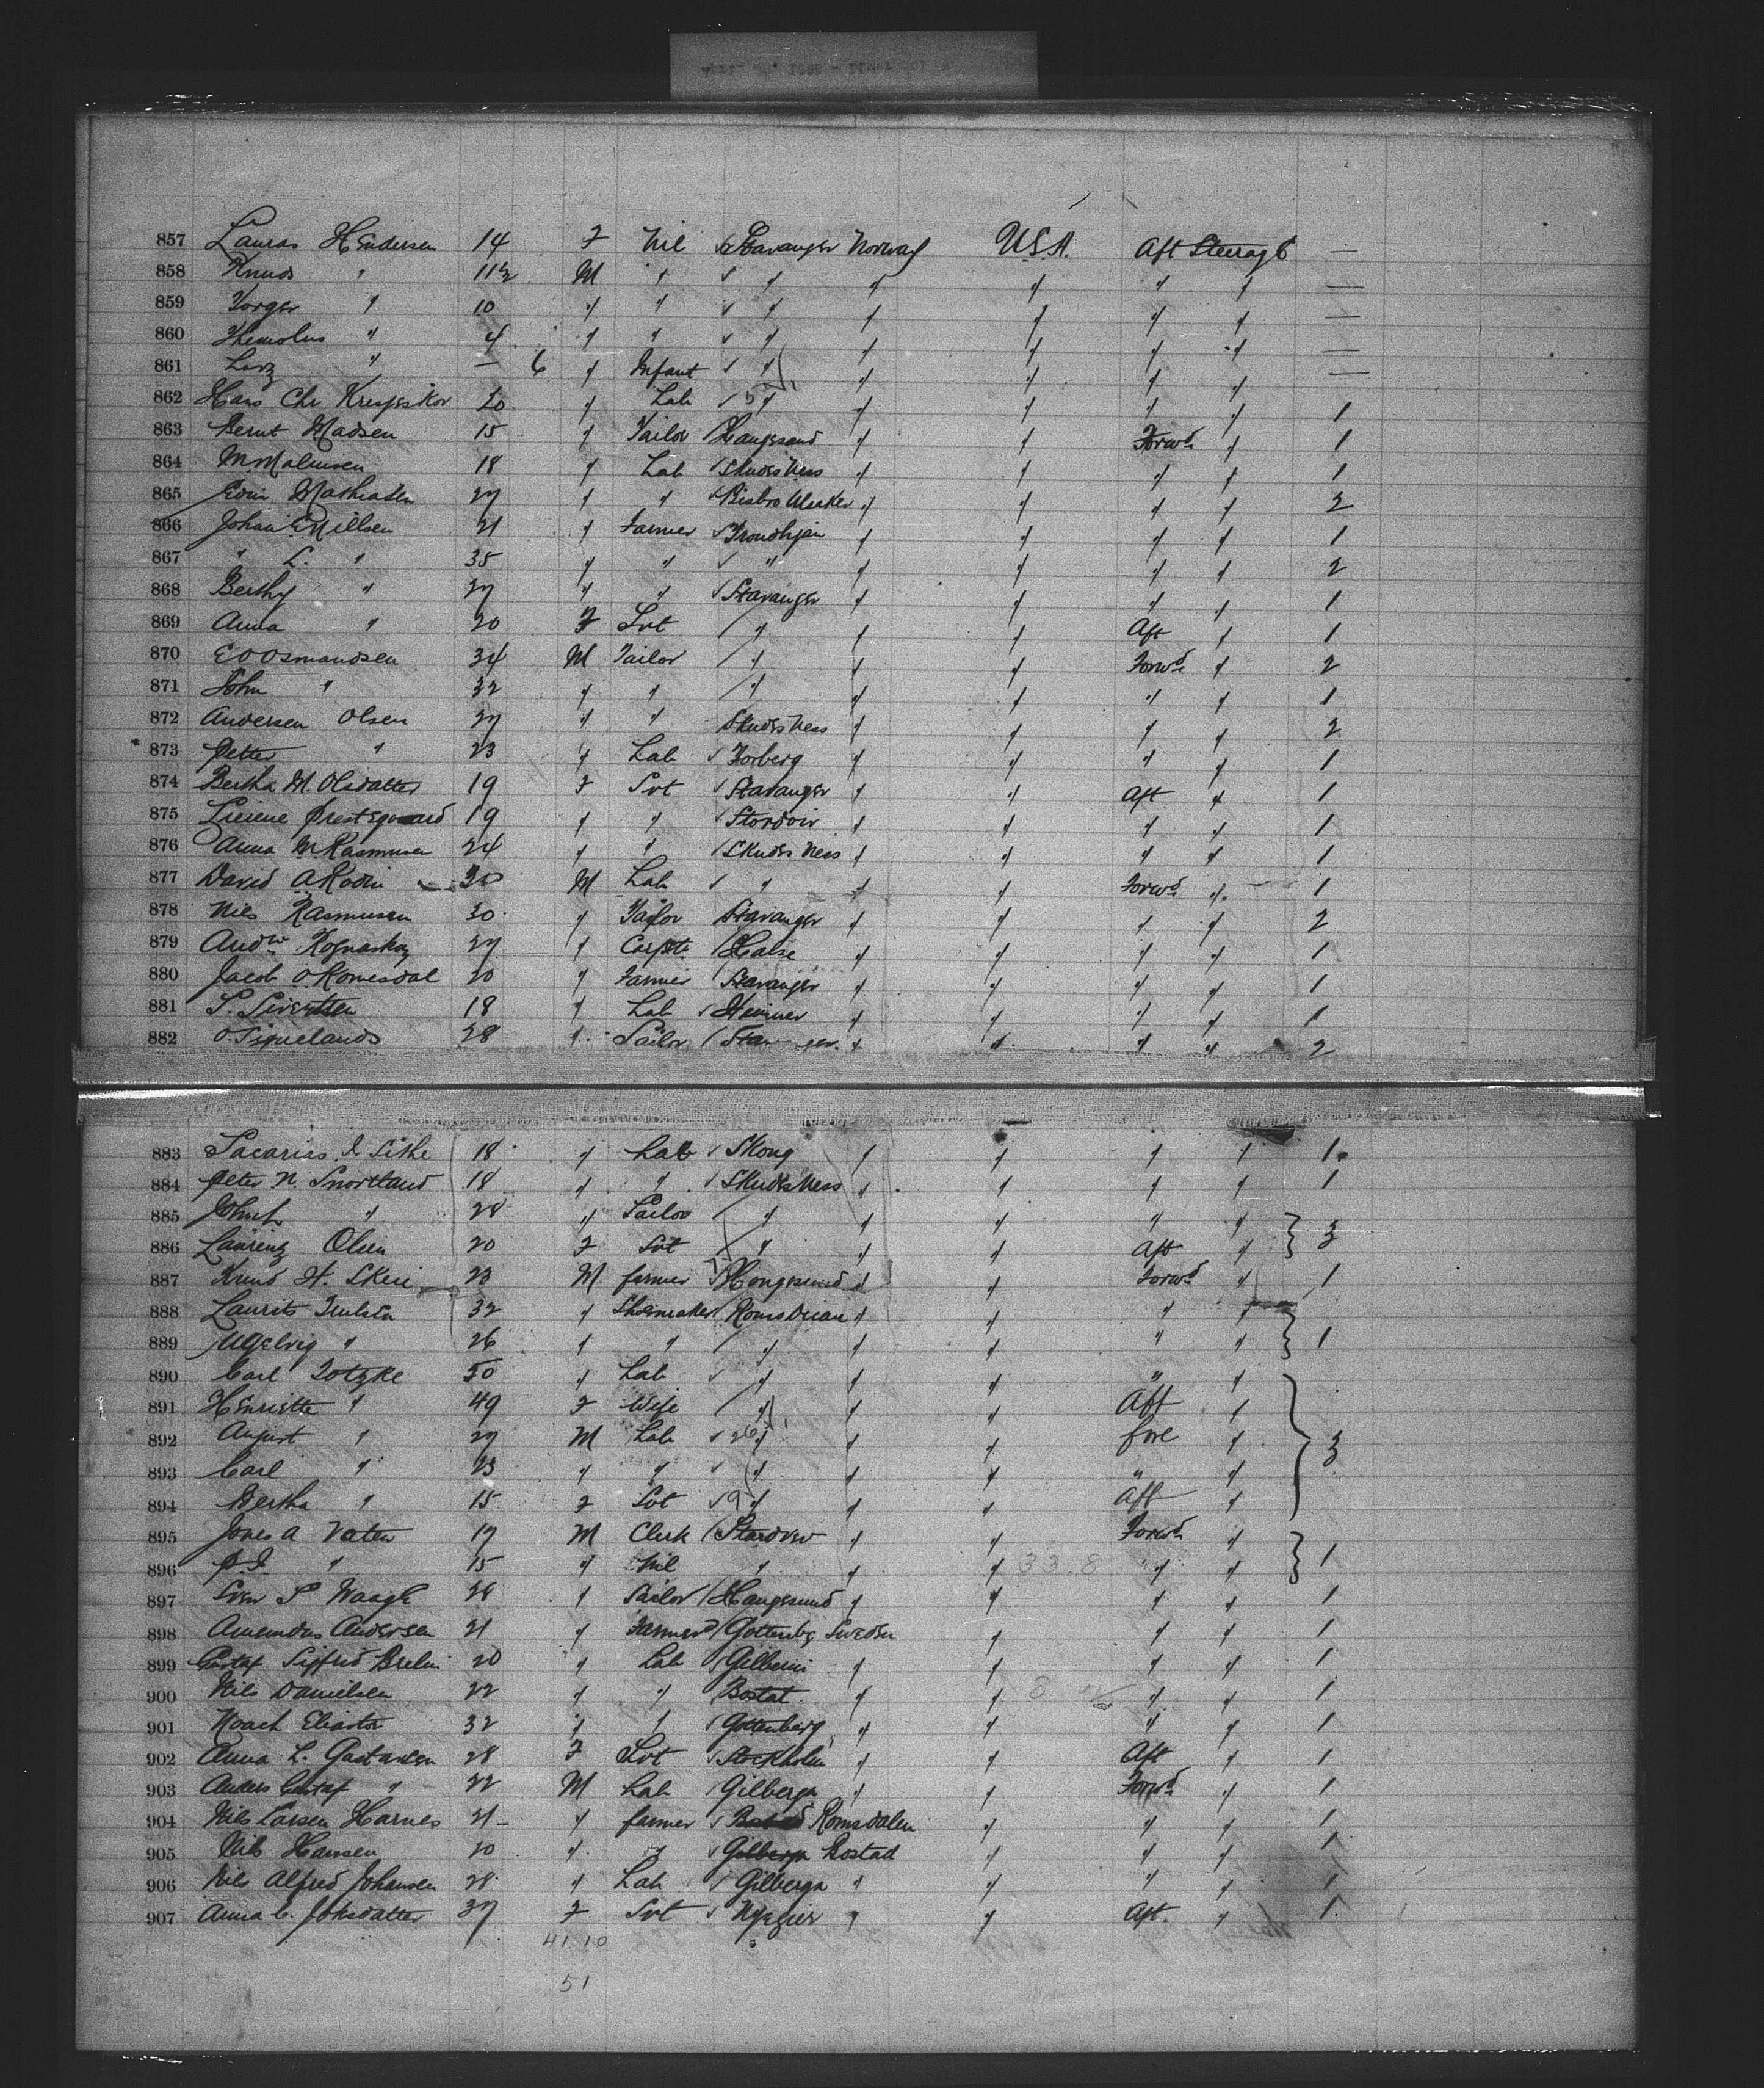 857 Lauras H Endersen 14 F Nil Stavanger Norway U.S.A. Aft Steerage —
858 Knud " 11½ M " " " " " " —
859 Torger " 10 " " " " " " " —
860 " 4 " " " " " " " —
861 Larz " — 6 " Infant " " " " " —
862 Hans Chr 20 " Lab " " " " " 1
863 Bernt Madsen 15 " Tailor Haugesund " " Forwd " 1
864 18 " Lab Skudes Ness " " " " 1
865 Edin Mathiasen 27 " " " " " " 2
866 Johan E Nillsen 21 " Farmer Trondhjem " " " " 1
867 " L. " 35 " " " " " " " 2
868 Berthy " 27 " " Stavanger " " " " 1
869 Anna " 20 F Svt " " " Aft " 1
870 E O Osmandsen 34 M Tailor " " " Forwd " 2
871 John " 32 " " " " " " " 1
872 Andersen Olsen 27 " " Skudes Ness " " " " 2
873 Petter " 23 " Lab Torberg " " " " 1
874 Bertha M. Olsdatter 19 F Svt Stavanger " " Aft " 1
875 Prestegvaard 19 " " " " " " 1
876 Anna M Rasmusen 24 " " Skudes Ness " " " " 1
877 David A Rodin 20 M Lab " " " Forwd " 1
878 Nils Rasmusen 30 " Tailor Stavanger " " " " 2
879 Andw 27 " Carptr Halse " " " " 1
880 Jacob O Romesdal 20 " Farmer Stavanger " " " " 1
881 S. Sivertsen 18 " Lab " " " " 1
882 O. Tiquelands 28 " Sailor Stavanger " " " " 2
883 Sacarias 18 " Lab Skong " " " " 1
884 Peter N. Snortland 18 " " Skudes Ness " " " " 1
885 " 28 " Sailor " " " " "
886 Laurenz Olsen 20 F Svt " " " Aft " } 3
887 Knud H. Skei 23 M farmer Hongesund " " Forwd " 1
888 Laurits 32 " Shoemaker " " " "
889 " 26 " " " " " " " } 1
890 Carl Totzke 50 " Lab " " " " "
891 Henriette " 49 F Wife " " " Aft "
892 August " 27 M Lab " 26 " " fore " } 3
893 Carl " 23 " " " " " " "
894 Bertha " 15 F Svt 9 " " " Aft "
895 Jones A Vatew 17 M Clerk " " Forwd "
896 " 15 " Nil " " " 33.8 " " } 1
897 Sven S Waage 28 " Sailor Haugesund " " " " 1
898 Amandus Andersen 21 " Farmer Gottenbg Sweden " " " 1
899 Gustaf Sigfrid Brelin 20 " Lab " " " " 1
900 Nils Danielsen 22 " " Bostat " " 8 " " 1
901 Noach 32 " " Gottenbarg " " " " 1
902 Anna L. Gustavsen 28 F Svt Stockholm " " Aft " 1
903 Anders Gustaf " 22 M Lab Gilberga " " Forwd " 1
904 Nils Larsen Harnes 21 " farmer Romsdalen " " " 1
905 Nils Hansen 20 " " Gilberga Bostad " " " 1
906 Nils Alfred Johansen 28 " Lab Gilberga " " " " 1
907 Anna C. Johsdatter 37 F Svt " " Aft. " 1
41.10
51